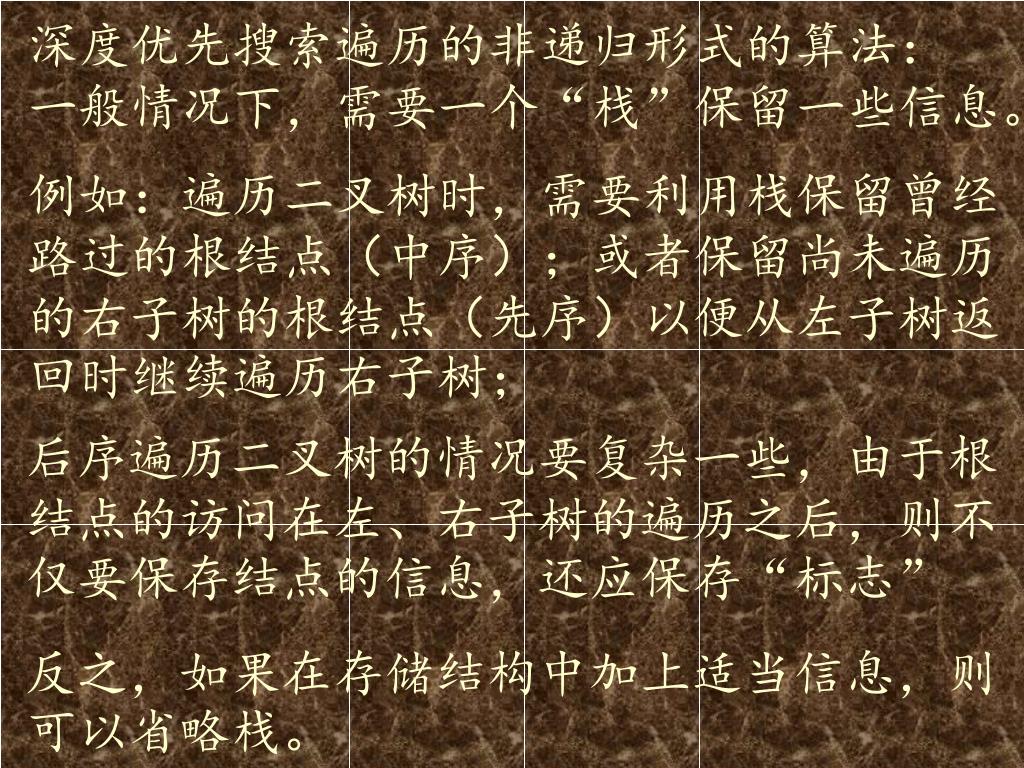 深度优先搜索遍历的非递归形式的算法：
一般情况下，需要一个“栈”保留一些信息。
例如：遍历二叉树时，需要利用栈保留曾经
路过的根结点（中序）；或者保留尚未遍历
的右子树的根结点（先序）以便从左子树返
回时继续遍历右子树；
后序遍历二叉树的情况要复杂一些，由于根
结点的访问在左、右子树的遍历之后，则不
仅要保存结点的信息，还应保存“标志”
反之，如果在存储结构中加上适当信息，则
可以省略栈。